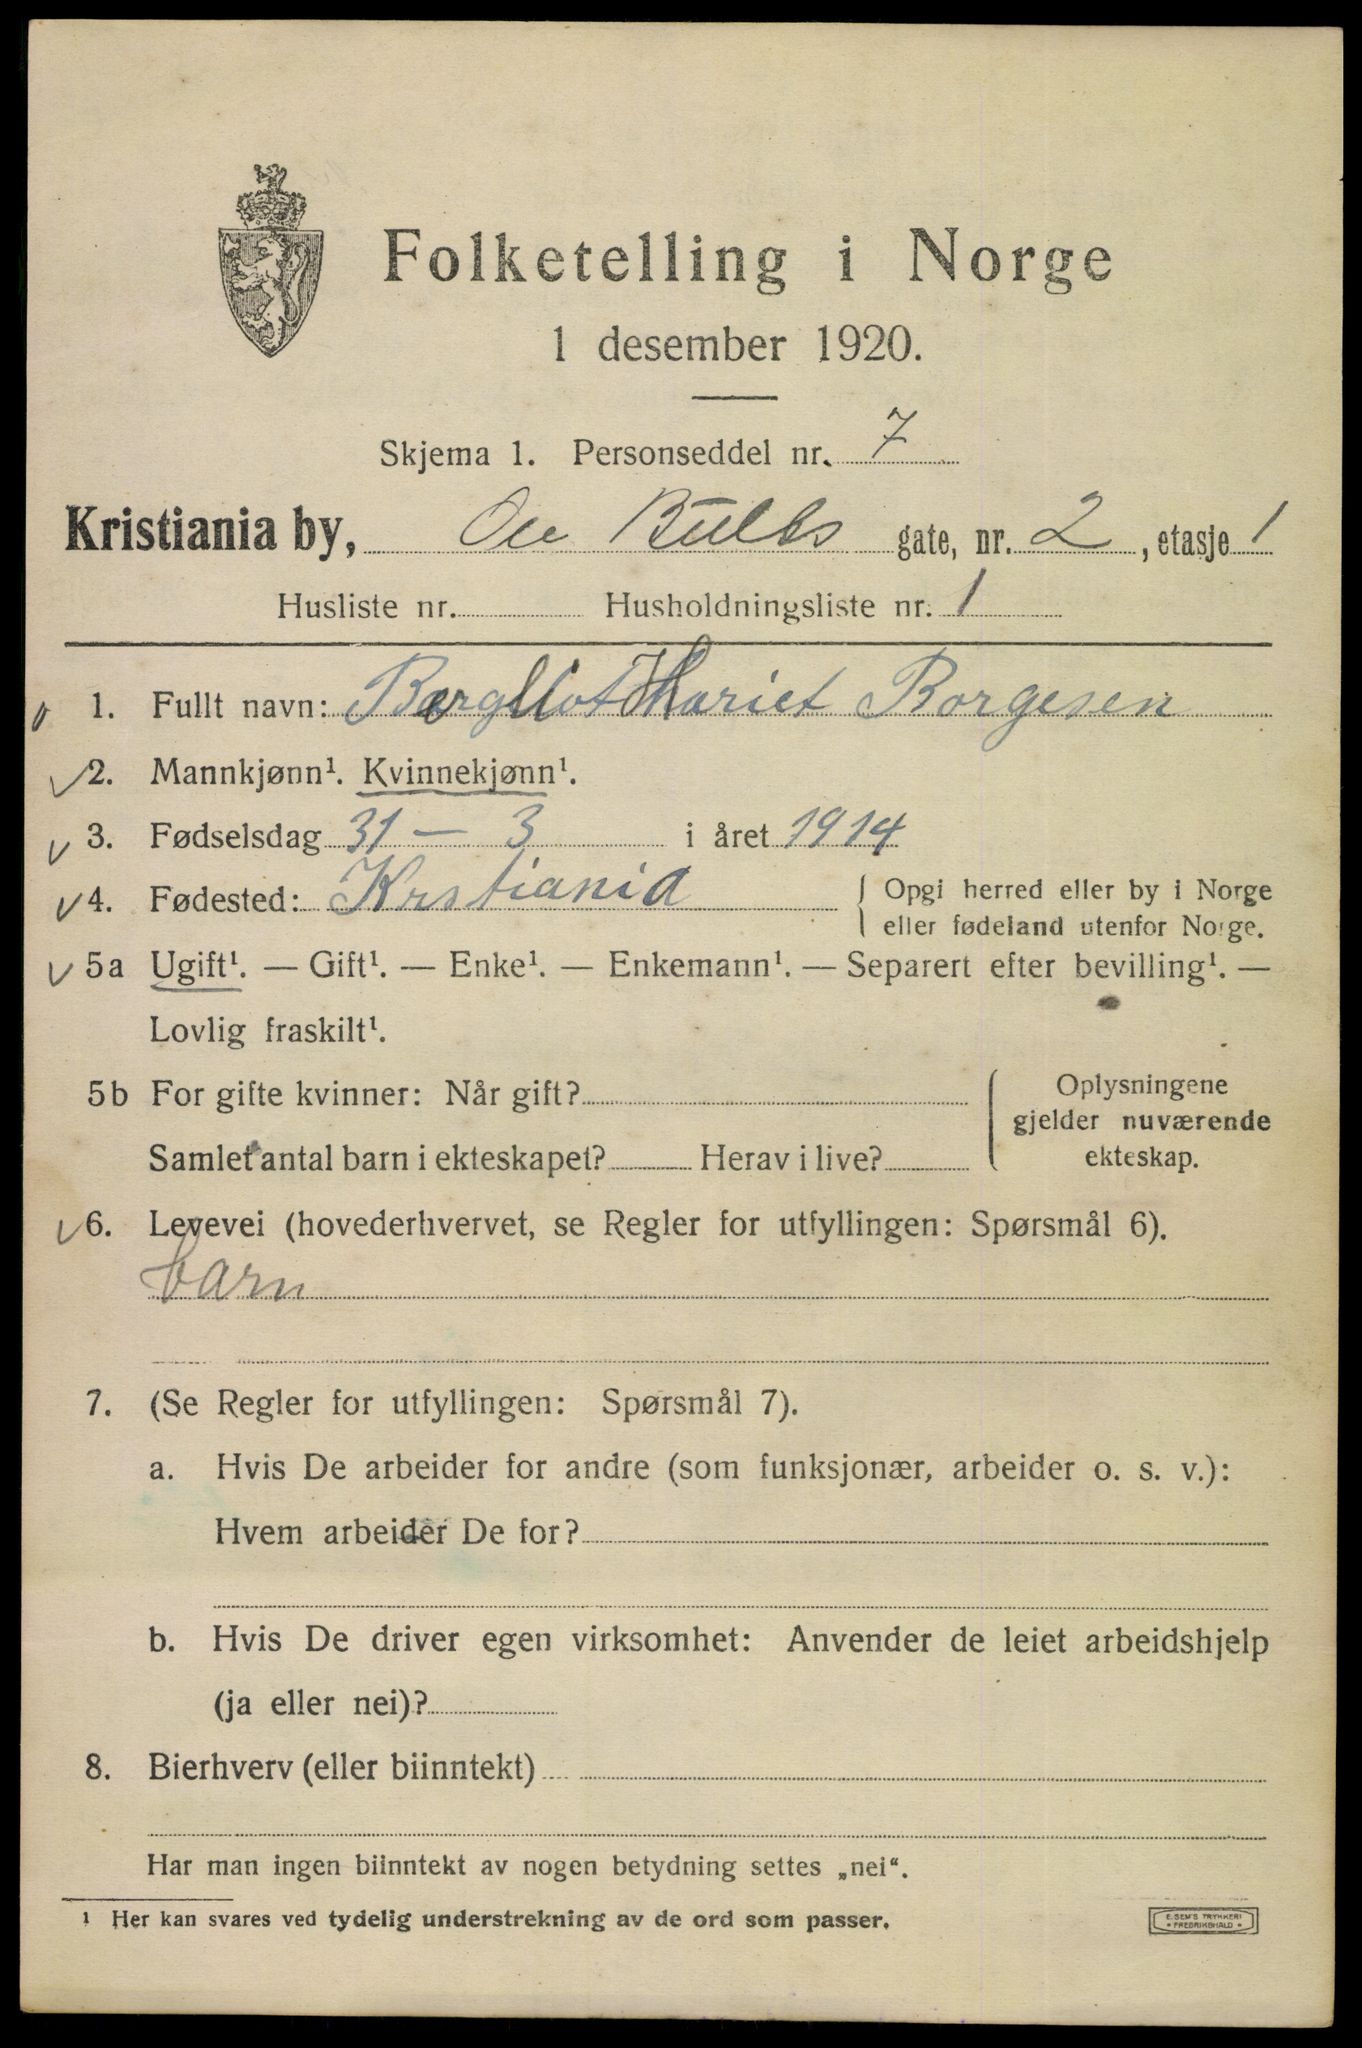 Folketelling i Norge
1 desember 1920.
Skjema 1. Personseddel nr. 7
Kristiania by, Ole Bulls gate, nr. 2, etasje 1
Husliste nr. Husholdningsliste nr. 1
1. Fullt navn: Bergliot Hariet Borgesen
2. Mannkjønn¹. Kvinnekjønn¹.
3. Fødselsdag 31 — 3 i året 1914
4. Fødested: Krstiania { Opgi herred eller by i Norge
eller fødeland utenfor Norge.
5a Ugift¹. — Gift¹. — Enke¹. — Enkemann¹. — Separert efter bevilling¹. —
Lovlig fraskilt¹.
5b For gifte kvinner: Når gift?
Samlet antal barn i ekteskapet? Herav i live?
Oplysningene
gjelder nuværende
ekteskap.
6. Levevei (hovederhvervet, se Regler for utfyllingen: Spørsmål 6).
barn
7. (Se Regler for utfyllingen: Spørsmål 7).
a. Hvis De arbeider for andre (som funksjonær, arbeider o. s. v.):
Hvem arbeider De for?
b. Hvis De driver egen virksomhet: Anvender de leiet arbeidshjelp
(ja eller nei)?
8. Bierhverv (eller biinntekt)
Har man ingen biinntekt av nogen betydning settes „nei“.
¹ Her kan svares ved tydelig understrekning av de ord som passer.
E. SEM'S TRYKKERI
• FREDRIKSHALD •